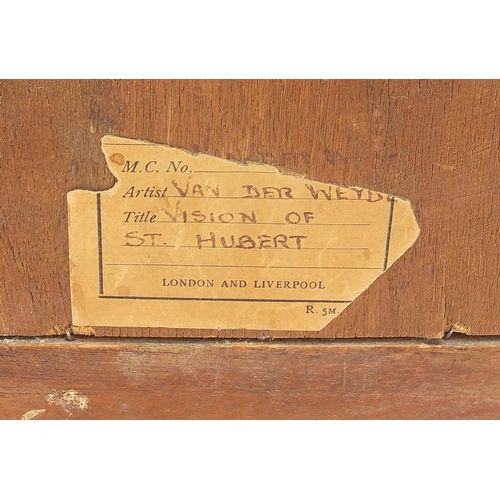 M.C. No.
Artist VAN DER WEYD
Title VISION OF
ST. HUBERT
LONDON AND LIVERPOOL
R. 5M.